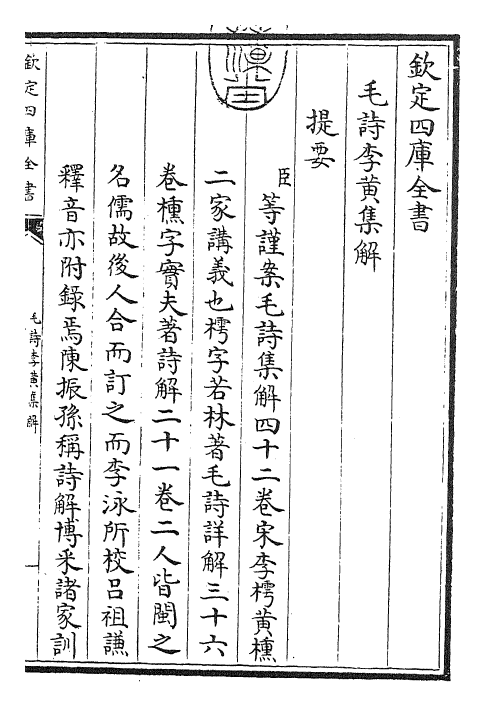 欽定四庫全書
毛詩李黃集解
提要
臣等謹案毛詩集解四十二卷宋李樗黃櫄
二家講義也樗字若林著毛詩詳解三十六
卷櫄字實夫著詩解二十一卷二人皆閩之
名儒故後人合而訂之而李泳所校呂祖謙
釋音亦附錄焉陳振孫稱詩解博釆諸家訓
欽定四庫全書
毛詩李黃集解
一